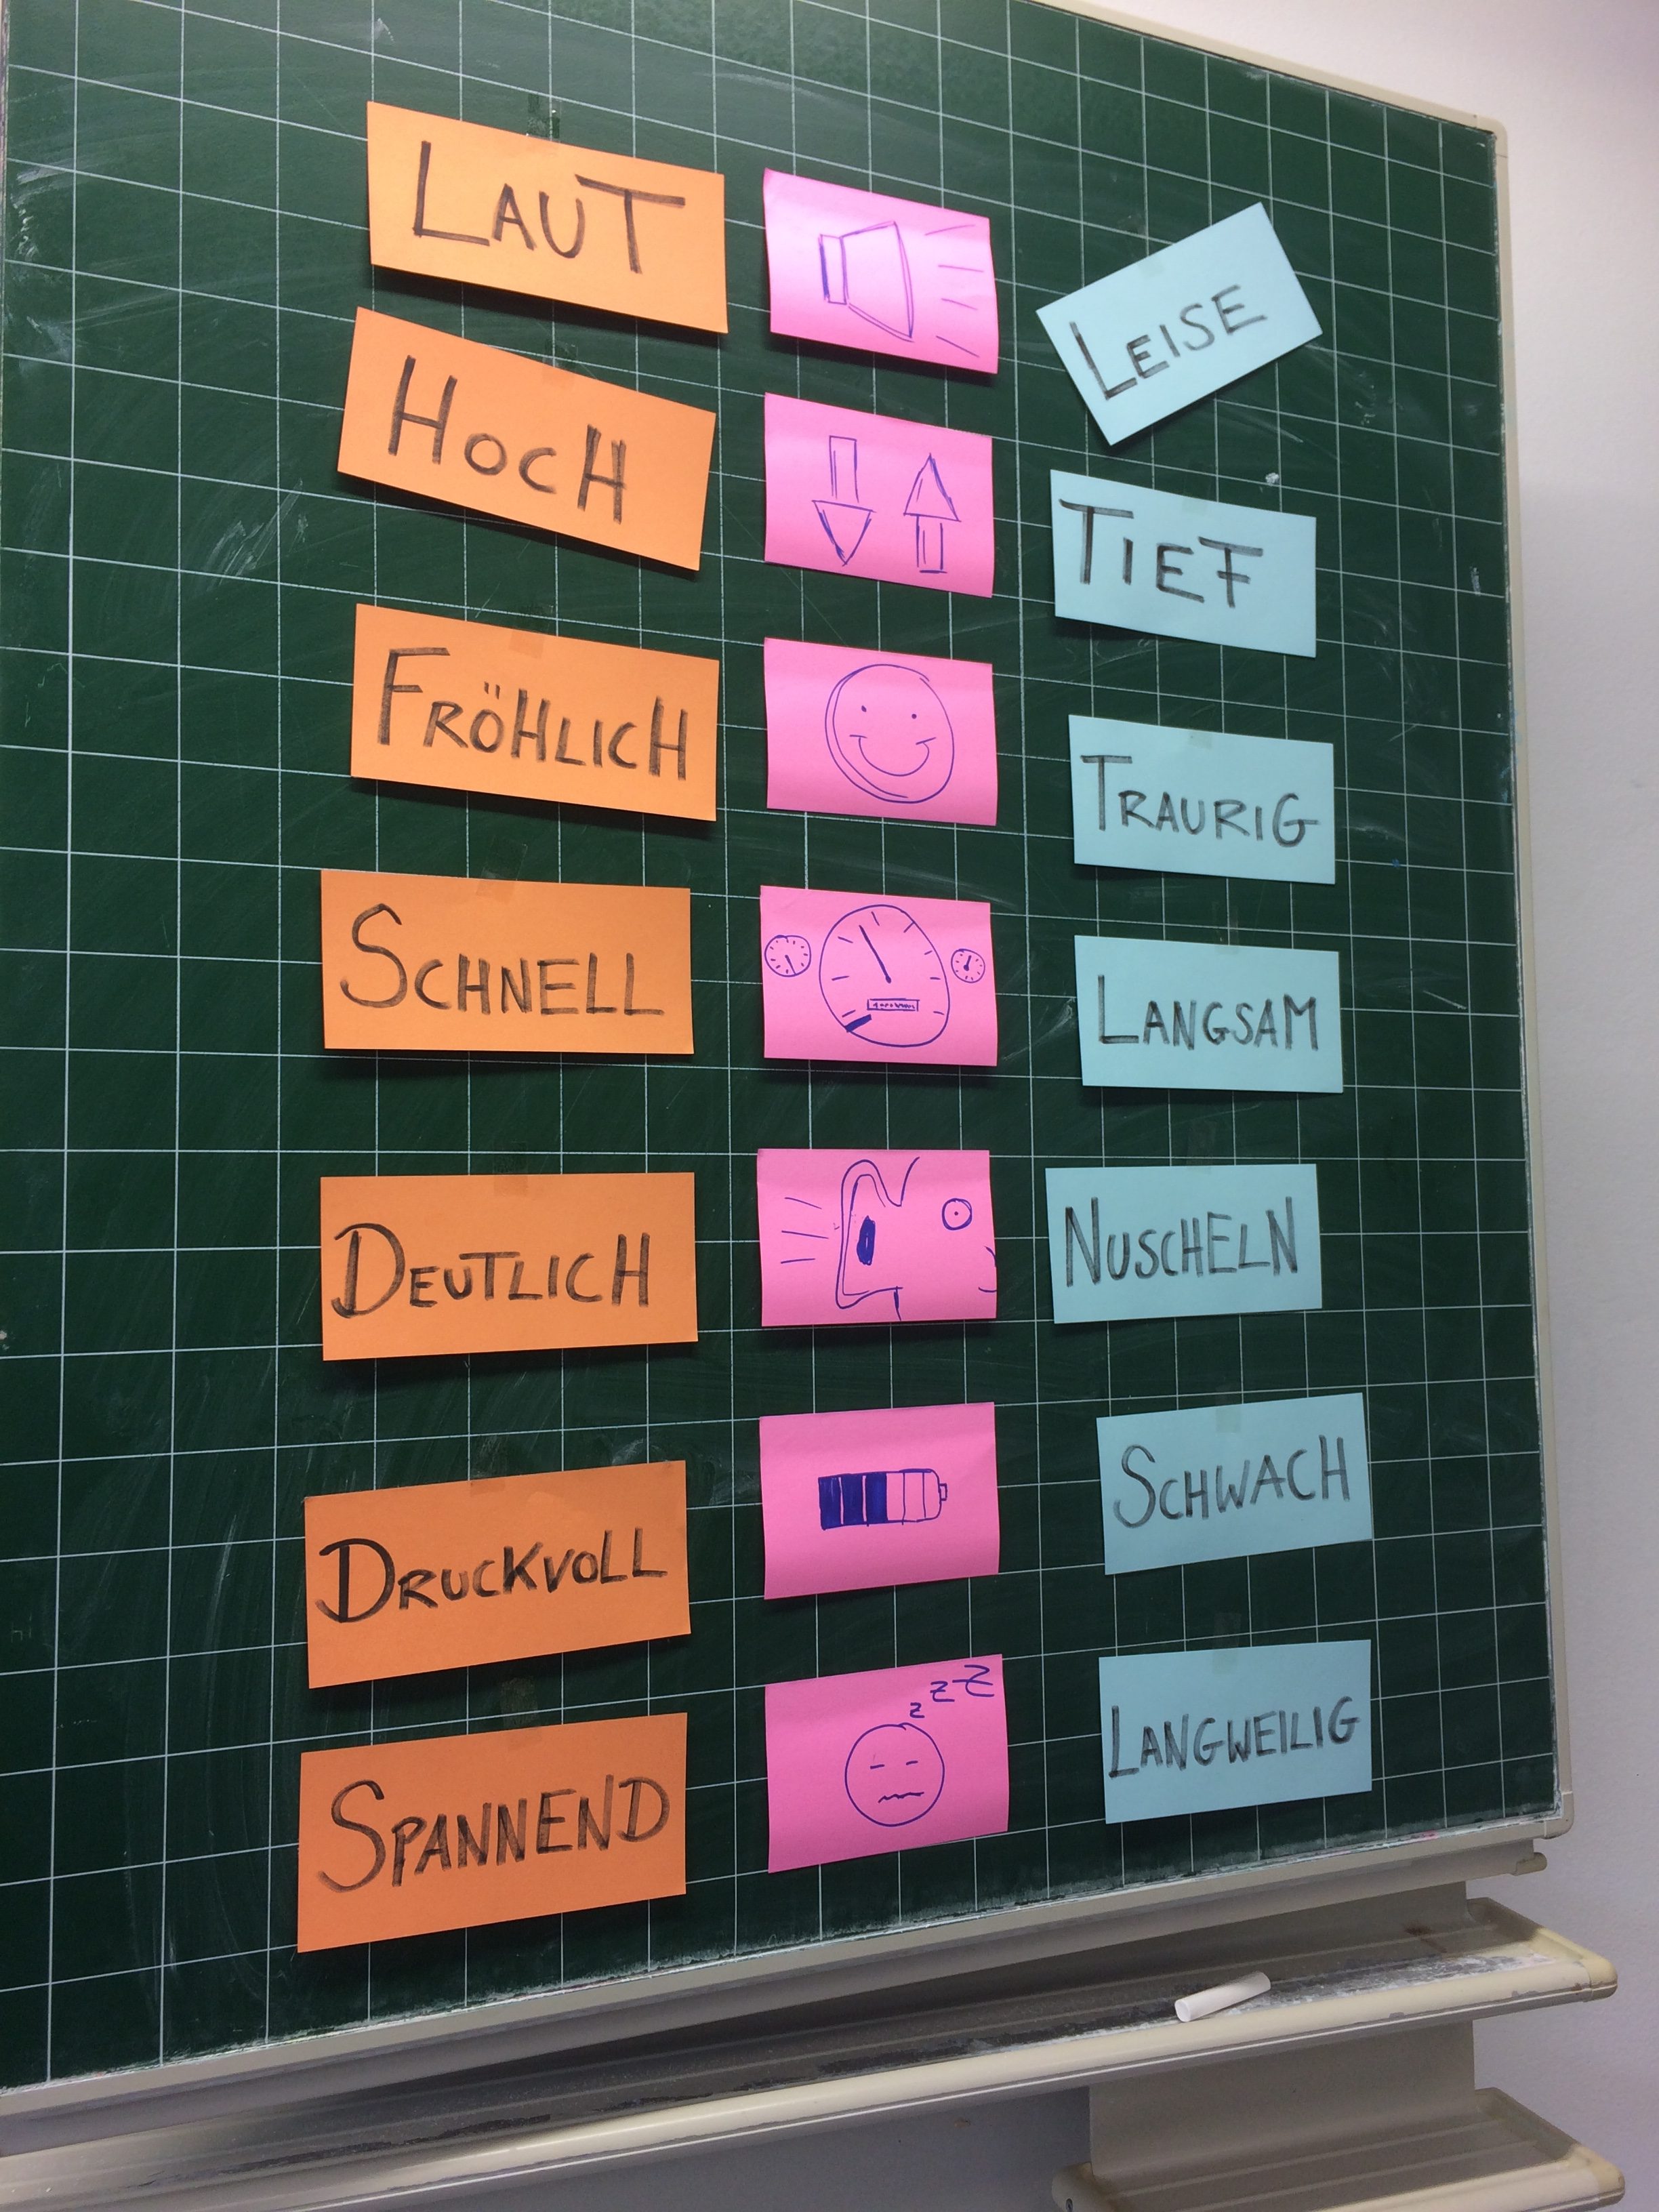 LAUT
LEISE
HOCH
TIEF
FRÖHLICH
TRAURIG
SCHNELL
LANGSAM
DEUTLICH
NUSCHELN
DRUCKVOLL
SCHWACH
z Z Z
SPANNEND
LANGWEILIG